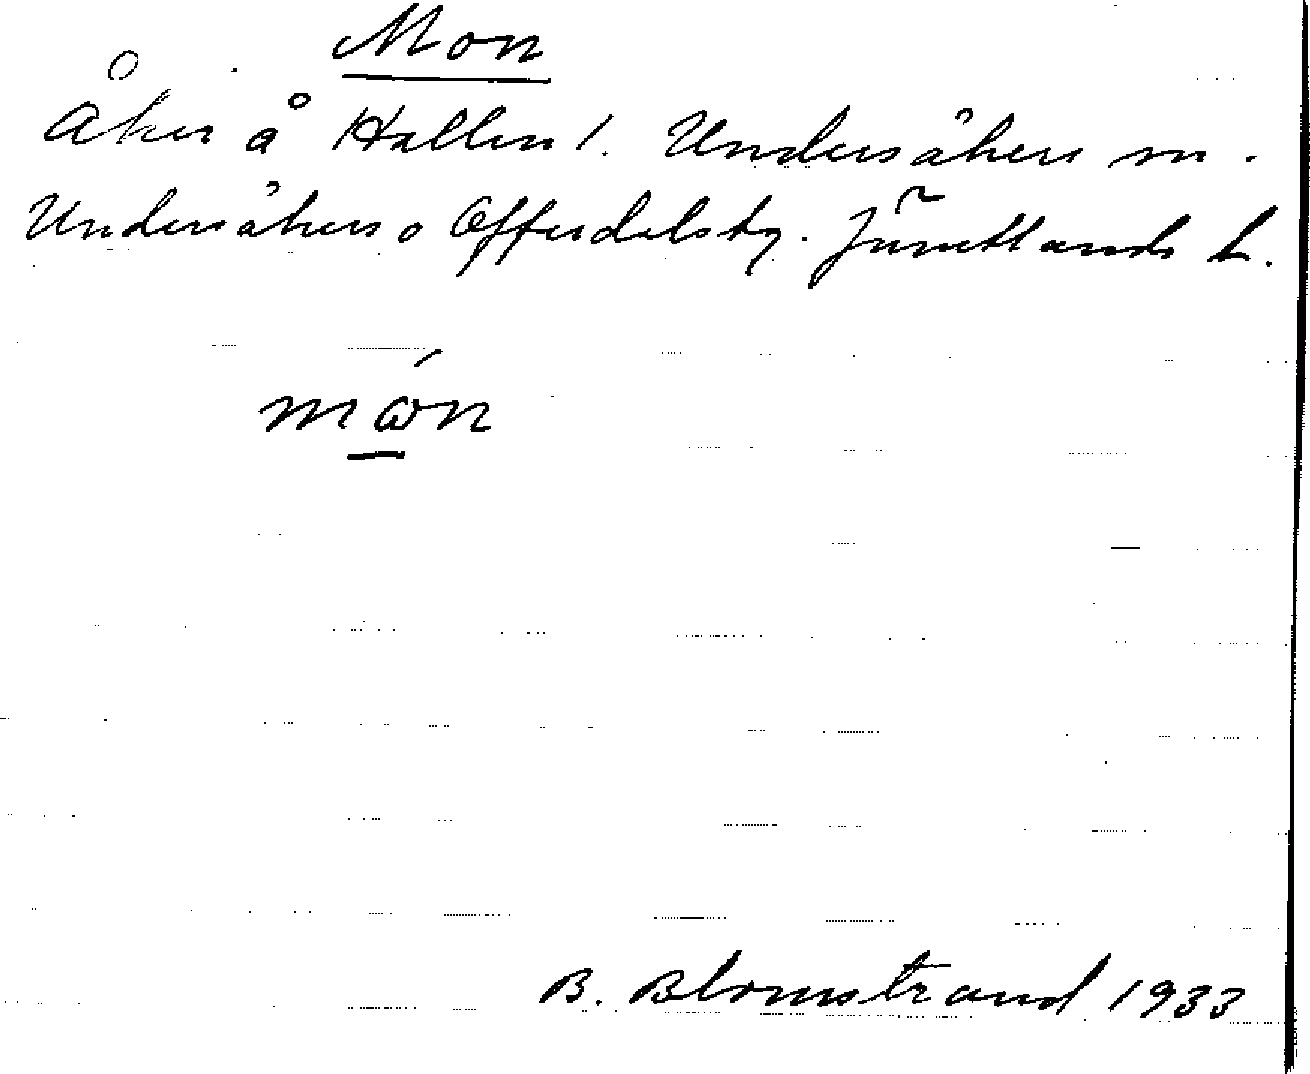 Mon
Åker å Hallen 1. Undersåkers sn.
Undersåkers o Offerdals tg. Jämtlands L.
mɷ́n
B. Blomstrand 1933